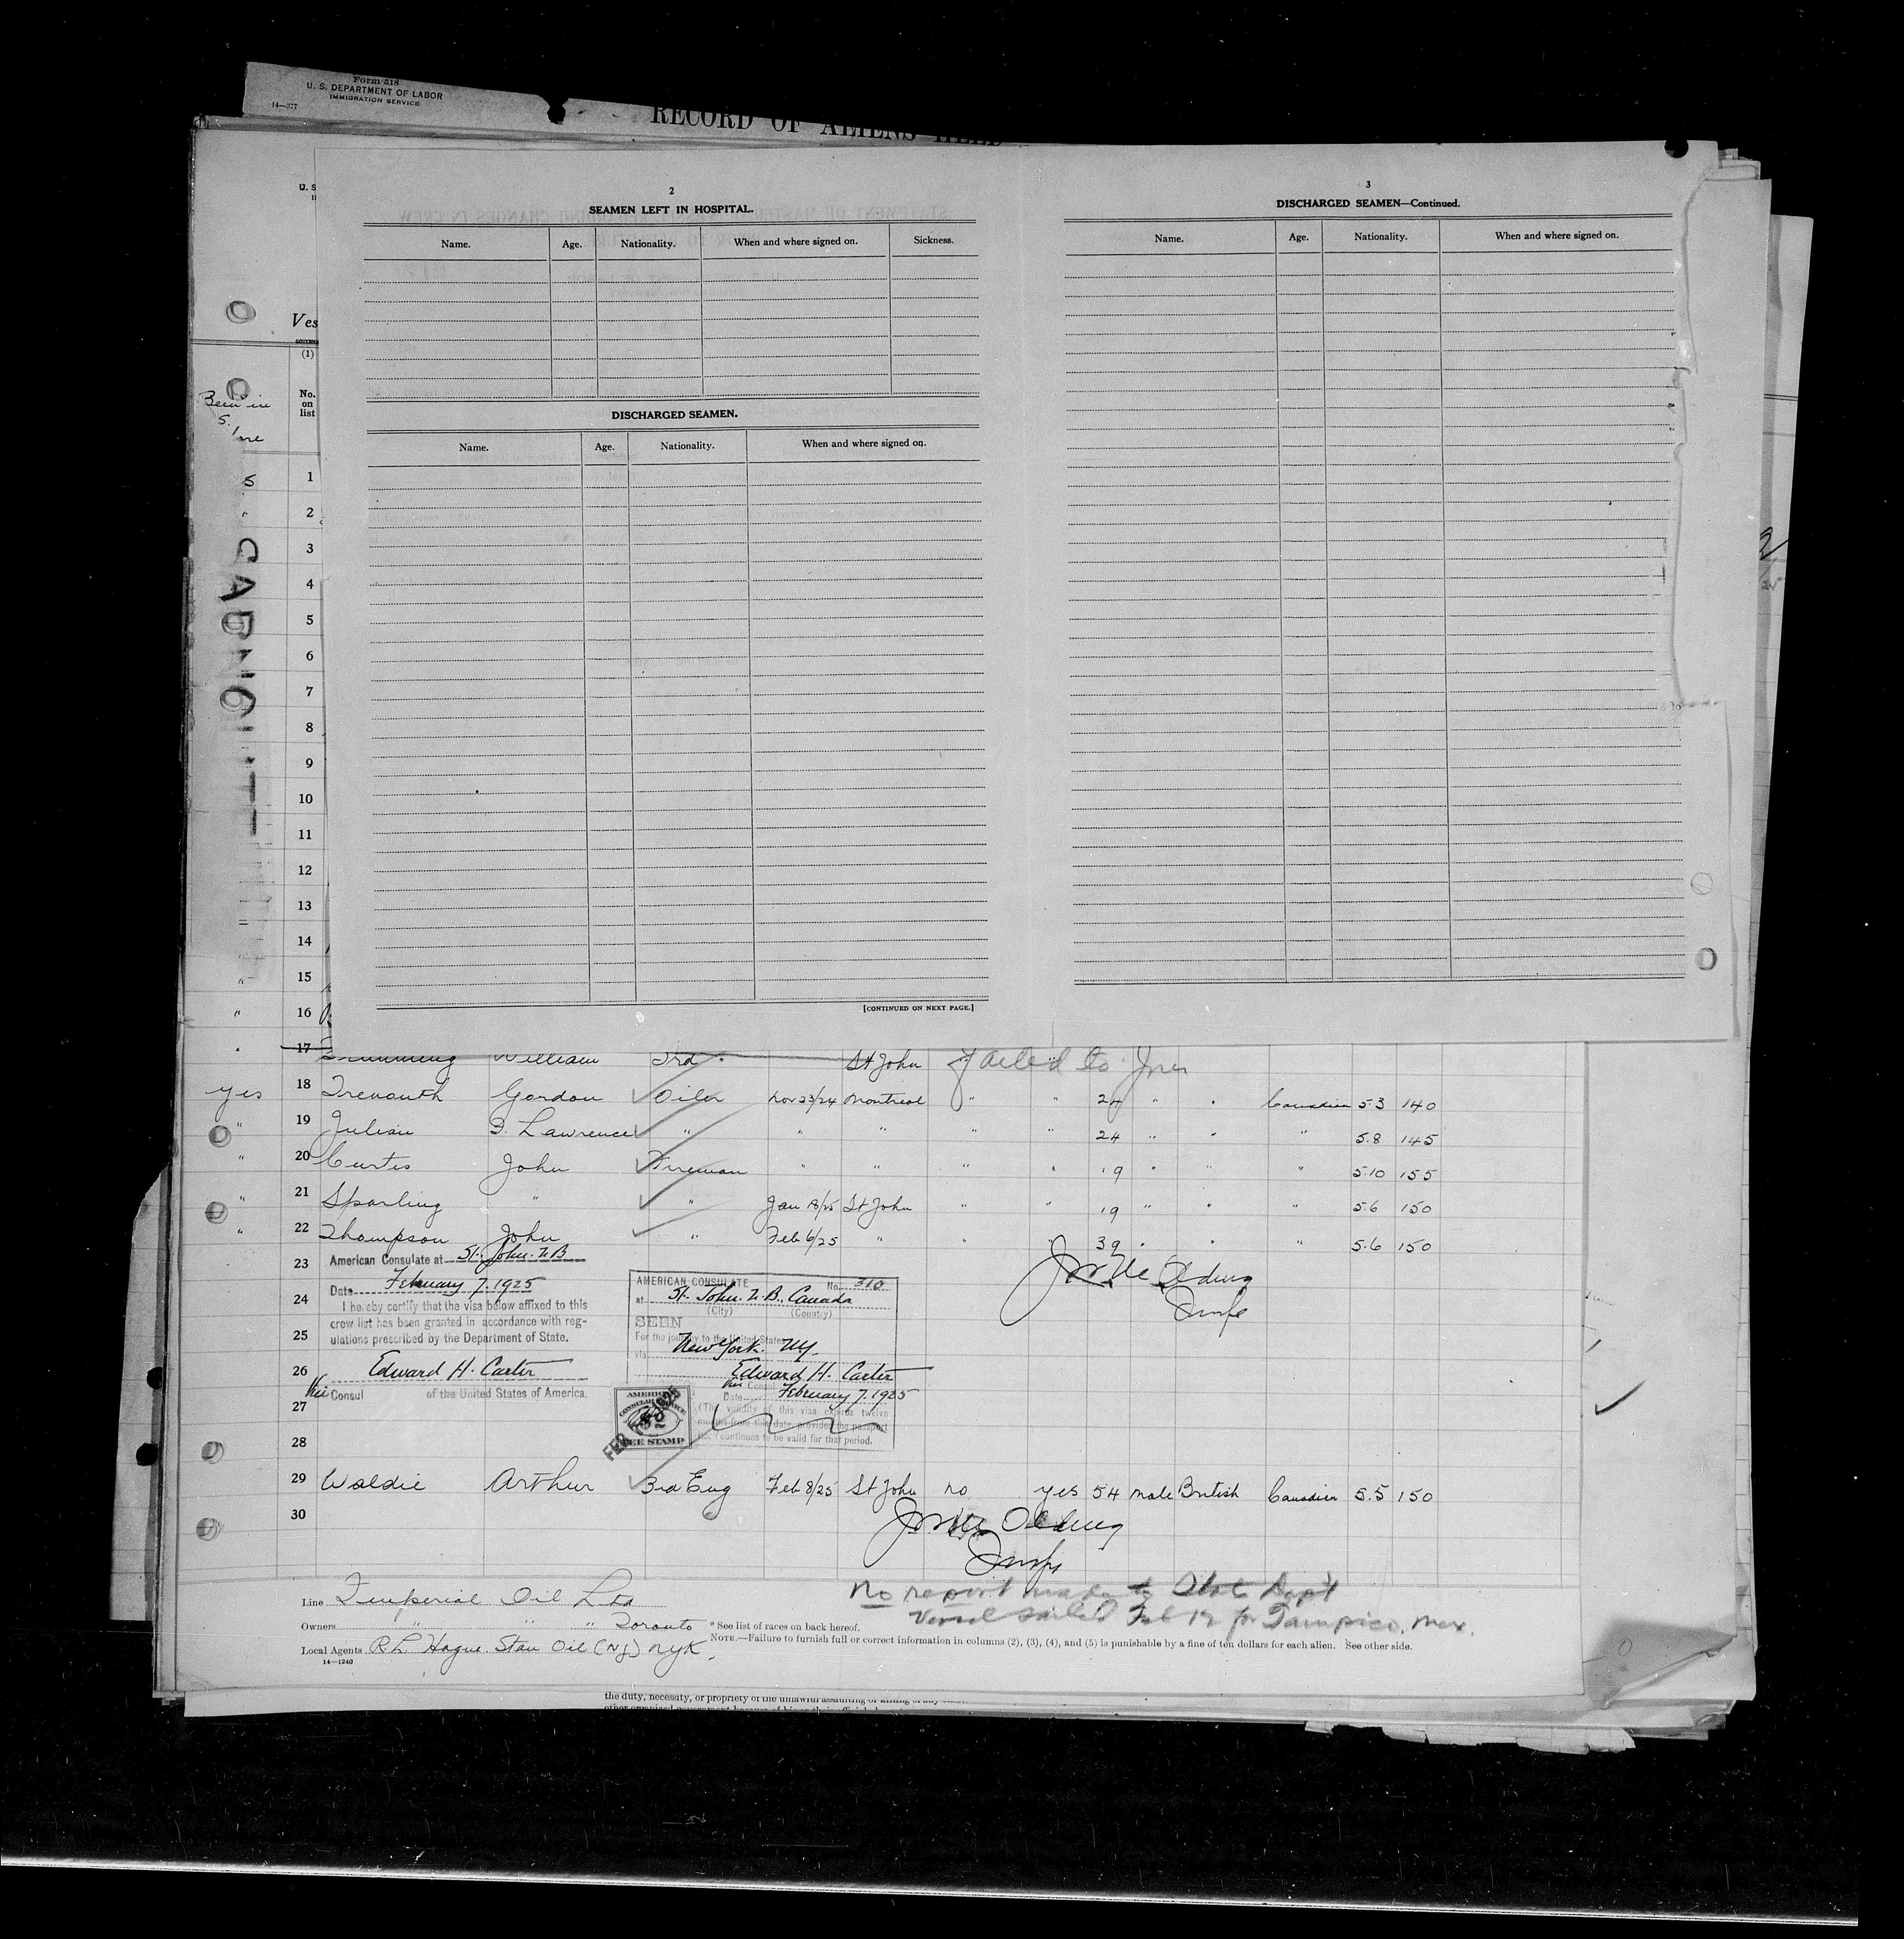 Form 518
U. S. DEPARTMENT OF LABOR
IMMIGRATION SERVICE
14—377
RECORD OF ALIENS HELD
2
SEAMEN LEFT IN HOSPITAL.
Name. Age. Nationality. When and where signed on. Sickness.
DISCHARGED SEAMEN.
Name. Age. Nationality. When and where signed on.
[CONTINUED ON NEXT PAGE.]
3
DISCHARGED SEAMEN—Continued.
Name. Age. Nationality. When and where signed on.
U. S
Ves
(1)
No.
on
list
Been in
1
2
3
4
5
6
7
8
9
10
11
12
13
14
15
16
17 William 3rd " St John Failed to Join
yes 18 Trenouth Gordon Oiler Nov 23/24 Montreal " " 24 " " Canadian 5.3 140
" 19 Julian D. Lawrence " " " " " 24 " " " 5.8 145
" 20 Curtis John Fireman " " " " 19 " " " 5.10 155
" 21 Sparling " " Jan 18/25 St John " " 19 " " " 5.6 150
" 22 Thompson John " Feb 6/25 " " 39 " " " 5.6 150
23 American Consulate at St. John. N.B
Date February 7. 1925
24 I hereby certify that the visa below affixed to this
crew list has been granted in accordance with reg-
25 ulations prescribed by the Department of State.
26 Edward H. Carter
Vice Consul of the United States of America.
27
28
AMERICAN CONSULATE No. 310
at St. John. N.B., Canada
(City) (Country)
SEEN
For the journey to the United States
via New York. NY.
Edward H. Carter
Vice Consul
Date February 7. 1925
(The validity of this visa expires twelve
months from this date, provided the passport
continues to be valid for that period.
AMERICAN
CONSULAR SERVICE
FEE STAMP
Olding
Insp
29 Waldie Arthur 3rd Eng Feb 8/25 St John no yes 54 male British Canadian 5.5 150
30
Olding
Insp
No report made to State Dep't
Vessel sailed Feb 12 for Tampico, Mex.
Line Imperial Oil Ltd
Owners " " " Toronto
*See list of races on back hereof.
Local Agents R L Hague. Stan Oil (NJ) NYK.
NOTE.—Failure to furnish full or correct information in columns (2), (3), (4), and (5) is punishable by a fine of ten dollars for each alien. See other side.
14—1240
the duty, necessity, or propriety of the unlawful assaulting or killing of any